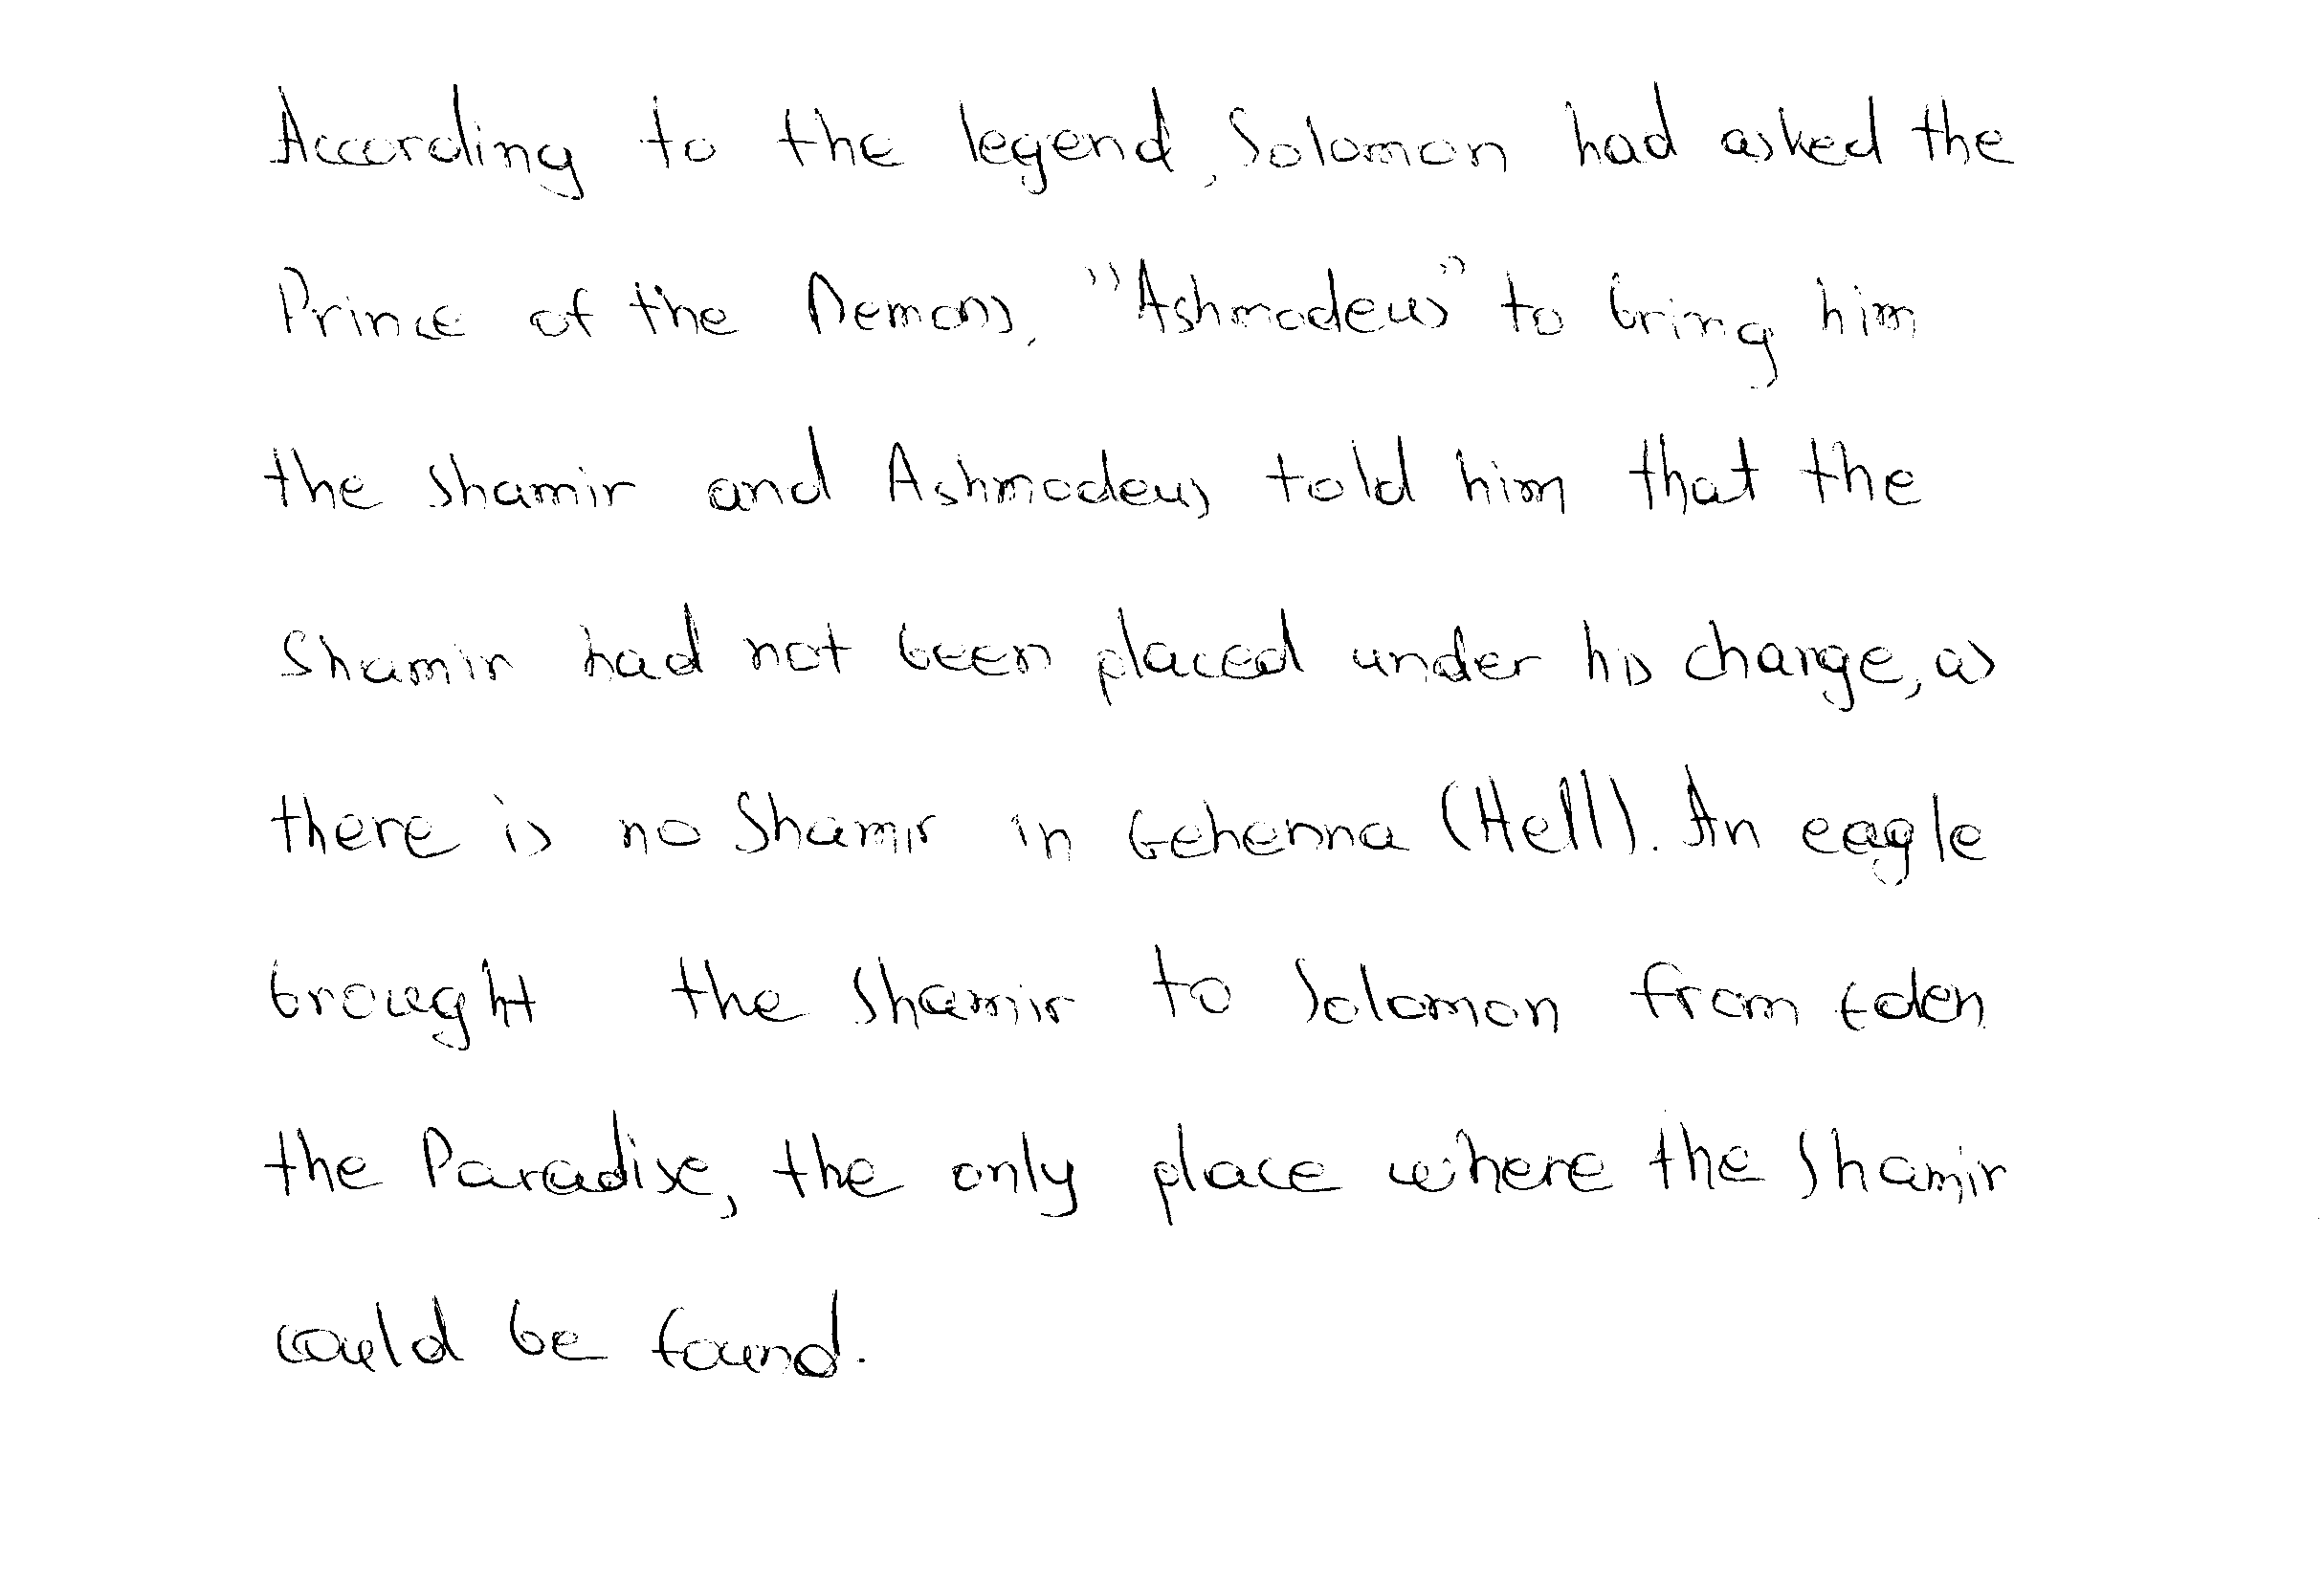 According to the legend, Solomon had asked the
Prince of the Demons, "Ashmodeus" to bring him
the Shamir and Ashmodeus told him that the
Shamir had not been placed under his charge, as
there is no Shamir in Gehenna (Hell). An eagle
brought the Shamir to Solomon from Eden
the Paradise, the only place where the Shamir
could be found.